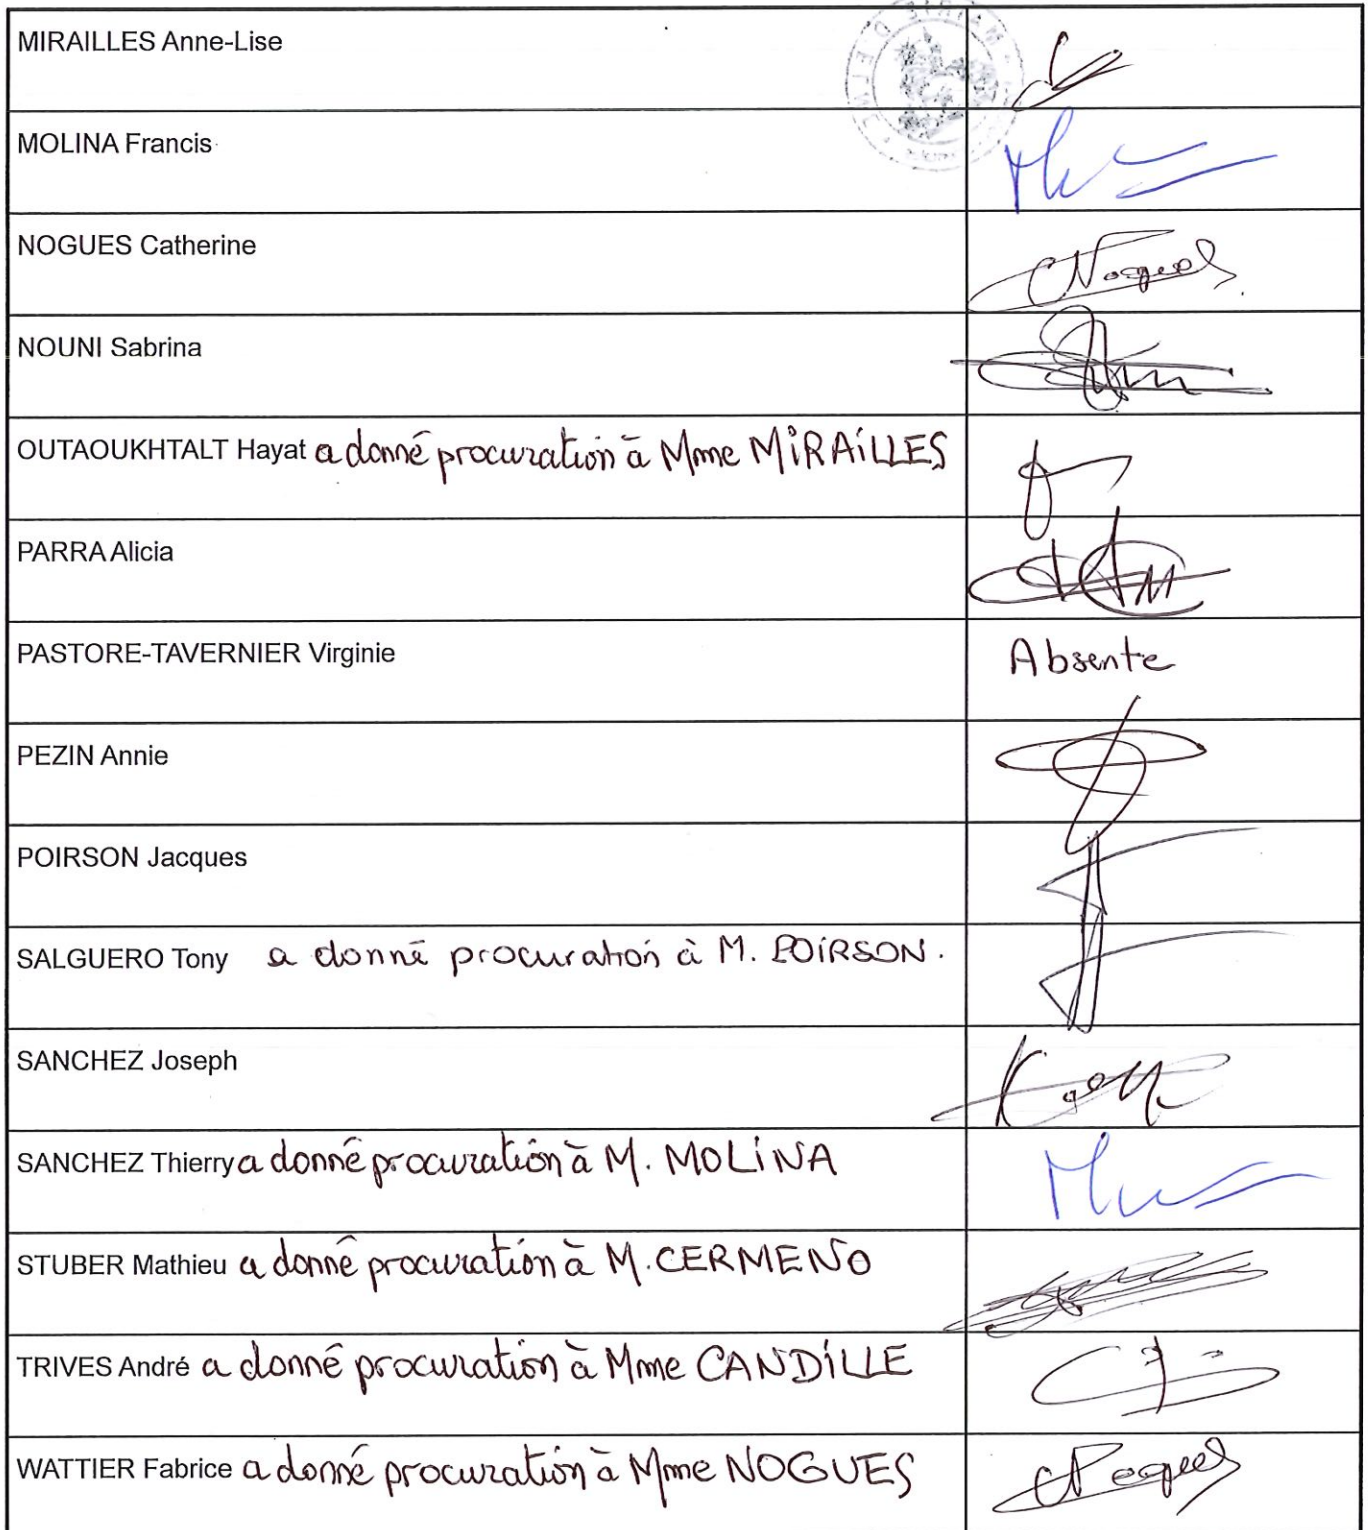 MIRAILLES Anne-Lise
MOLINA Francis
NOGUES Catherine
CNogues
NOUNI Sabrina
OUTAOUKHTALT Hayat a donné procuration à Mme MiRAiLLES
PARRA Alicia
PASTORE-TAVERNIER Virginie Absente
PEZIN Annie
POIRSON Jacques
SALGUERO Tony a donné procuration à M. POiRSON.
SANCHEZ Joseph
SANCHEZ Thierry a donné procuration à M. MOLiNA
STUBER Mathieu a donné procuration à M. CERMENO
TRIVES André a donné procuration à Mme CANDiLLE
WATTIER Fabrice a donné procuration à Mme NOGUES
CNogues